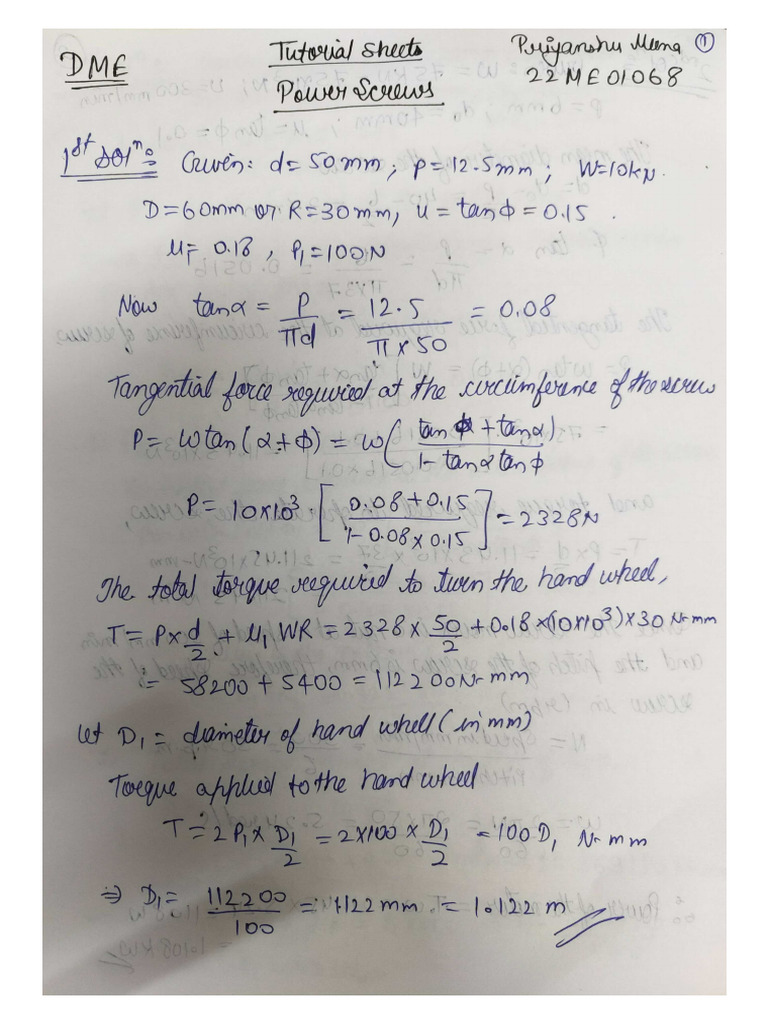 DME
Tutorial Sheets
Power Screws
Priyanshu Meena ①
22ME01068
1st Solnº= Given: d=50mm; p=12.5mm; W=10kN.
D=60mm or R=30mm, u=tanϕ=0.15.
u₁= 0.18, P₁=100N
Now tanα = P/πd = 12.5/π×50 = 0.08
Tangential force required at the circumference of the screw
P= Wtan(α+ϕ) = W(tanα+tanα/1-tanαtanϕ)
P= 10×10³ · [0.08+0.15/1-0.08×0.15] = 2328N
The total torque required to turn the hand wheel,
T= P×d/2 + u₁WR = 2328 × 50/2 + 0.18×(10×10³)×30 N-mm
= 58200 + 5400 = 112200N-mm
Let D₁= diameter of hand whell (in mm)
Torque applied to the hand wheel
T= 2P₁×D₁/2 = 2×100×D₁/2 = 100D₁ N-mm
⇒ D₁= 112200/100 = 1122mm = 1.122 m